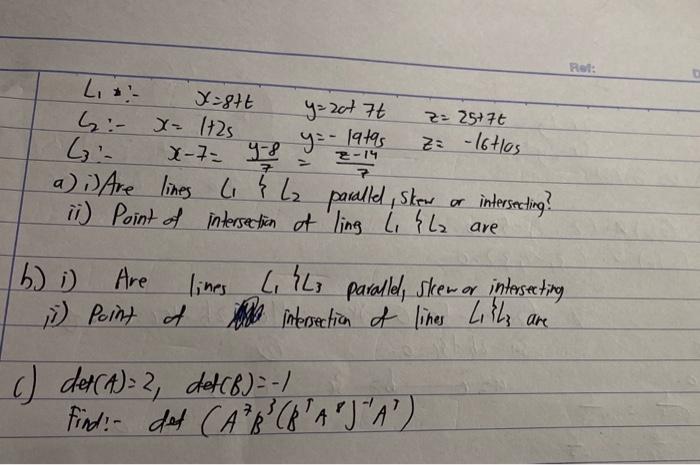 Ref:
L₁ :- x=8+t y=20+7t z=25+7t
L₂ :- x= 1+2s y=-19+9s z= -16+10s
L₃ :- x-7= y-8/7 = z-14/7
a) i) Are lines L₁ & L₂ parallel, skew or intersecting?
ii) Point of intersection of line L₁ & L₂ are
b) i) Are lines L₁ & L₃ parallel, skew or intersecting
ii) Point of intersection of lines L₁ & L₃ are
c) det(A)=2, det(B)=-1
Find:- det (A⁷B³( A⁸)⁻¹A⁷)